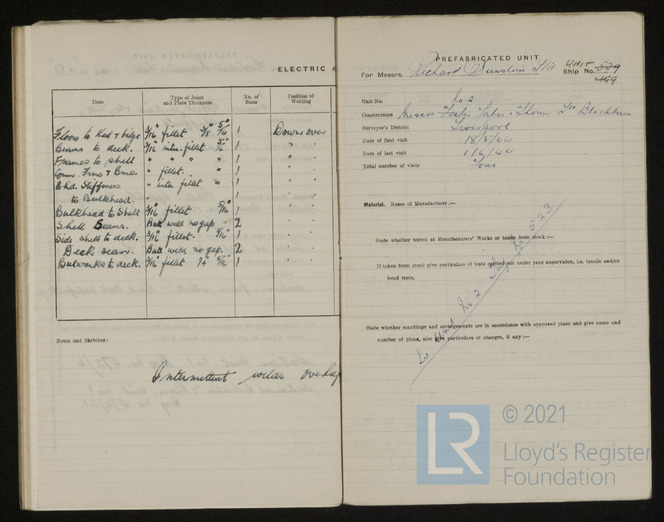 ELECTRIC A
Item
Type of Joint and Plate Thickness
No. of Runs
Position of Welding
Floors to Keel & bilge 3/16" fillet 1 Downover
Beams to deck. 3/16" inter. fillet 1 " "
Frames to shell " " " " 1 " "
" fillet. " 1 " "
Bhd. Stiffeners " inter fillet " 1 " "
to Bulkhead.
Bulkhead to Shell 3/16" fillet 5/16" 1 " "
Shell Seams. Butt weld no gap 2 " "
Side shell to deck. 3/16" fillet. 5/16" 1 " "
Deck seam. Butt weld no gap. 2 " "
Bulwarks to deck. 3/16" fillet 5/16" 1 " "
Notes and Sketches:
Intermittent welds overlap
PREFABRICATED UNIT
For Messrs. Richard Dunston Ltd Ship No. 499
Unit No. No 2
Constructors Messrs Foster Yates & Thom Ltd Blackburn
Surveyor's District Liverpool
Date of first visit 18/5/44
Date of last visit 1/6/44
Total number of visits Four
Material. Name of Manufacturer:—
State whether tested at Manufacturers' Works or taken from stock:—
If taken from stock give particulars of tests carried out under your supervision, i.e. tensile and/or
bend tests,
State whether scantlings and arrangements are in accordance with approved plans and give name and
number of plans, also give particulars of changes, if any:—
As Unit No 2
© 2021
LR
Lloyd's Register
Foundation